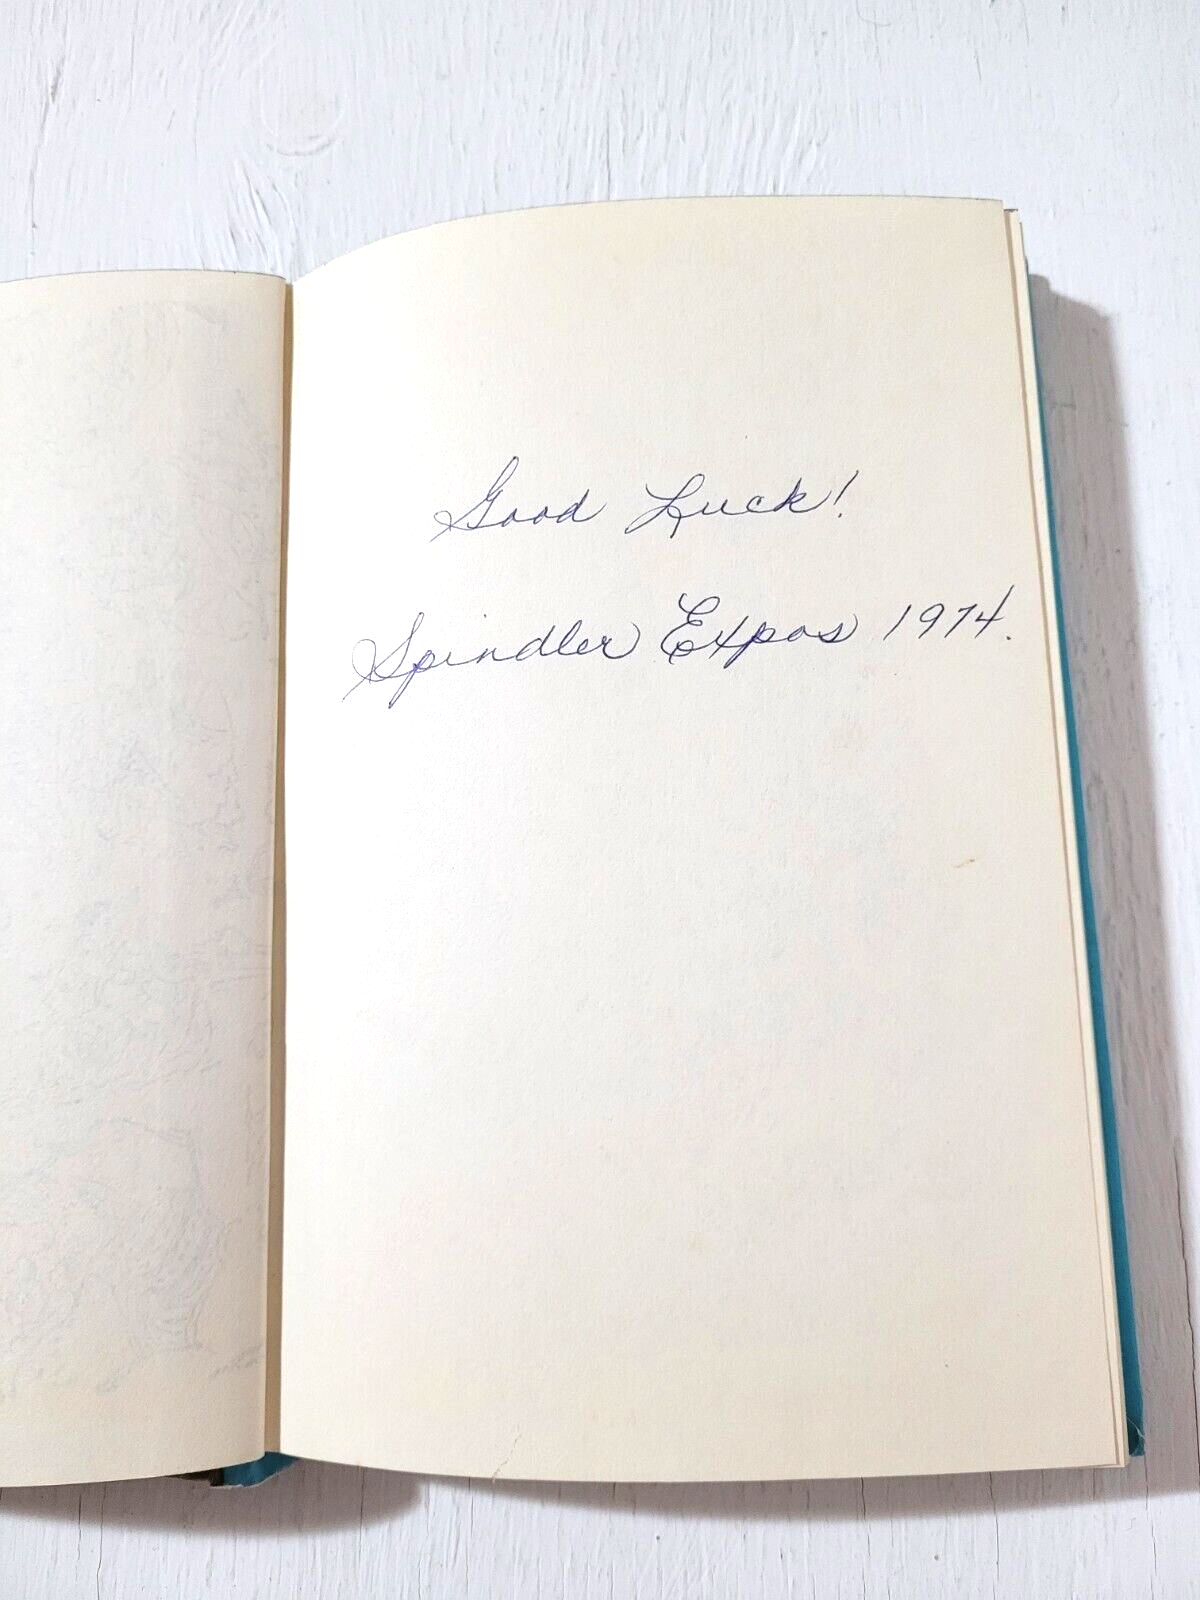 Good Luck!
Spindler Expos 1974.